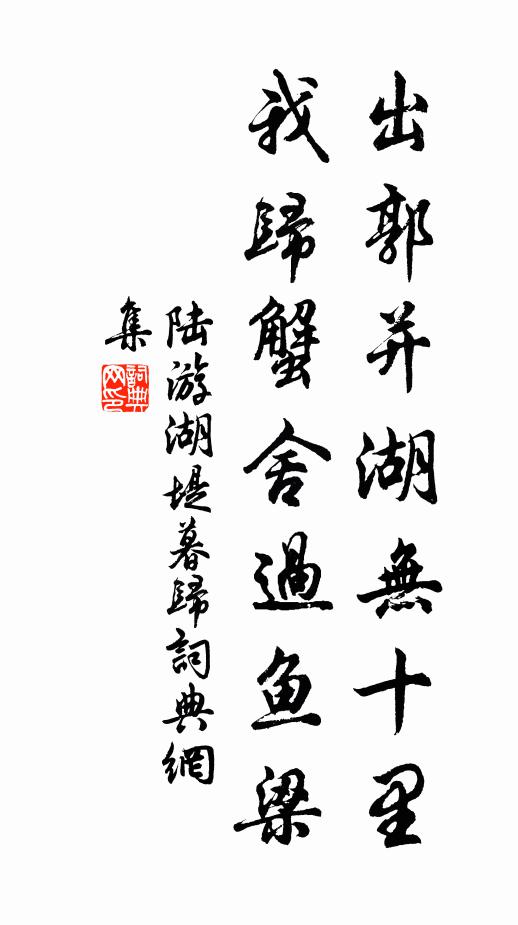 出郭并湖無十里
我歸蟹舍過鱼梁
陆游湖堤暮歸詞典網
集
詞典
网印